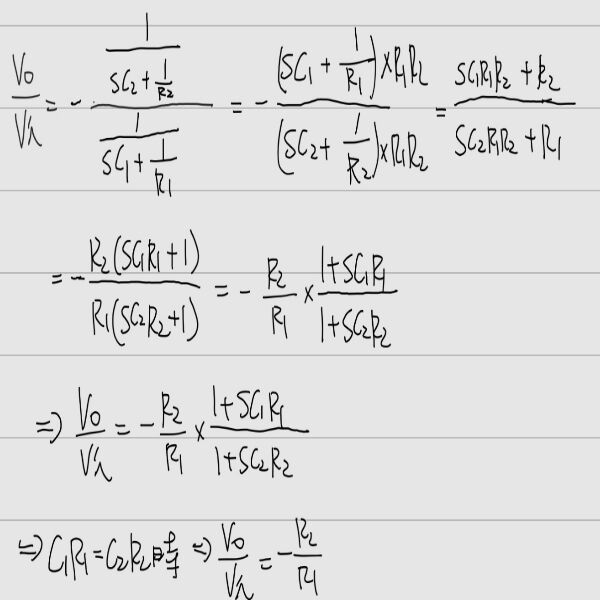 Vo/Vi = - (1/(SC2 + 1/R2))/(1/(SC1 + 1/R1)) = - ((SC1 + 1/R1)×R1R2)/((SC2 + 1/R2)×R1R2) = (SC1R1R2 + R2)/(SC2R1R2 + R1)
= - R2(SC1R1+1)/R1(SC2R2+1) = - R2/R1 × (1+SC1R1)/(1+SC2R2)
⇒ Vo/Vi = - R2/R1 × (1+SC1R1)/(1+SC2R2)
⇒ C1R1 = C2R2時 ⇒ Vo/Vi = - R2/R1